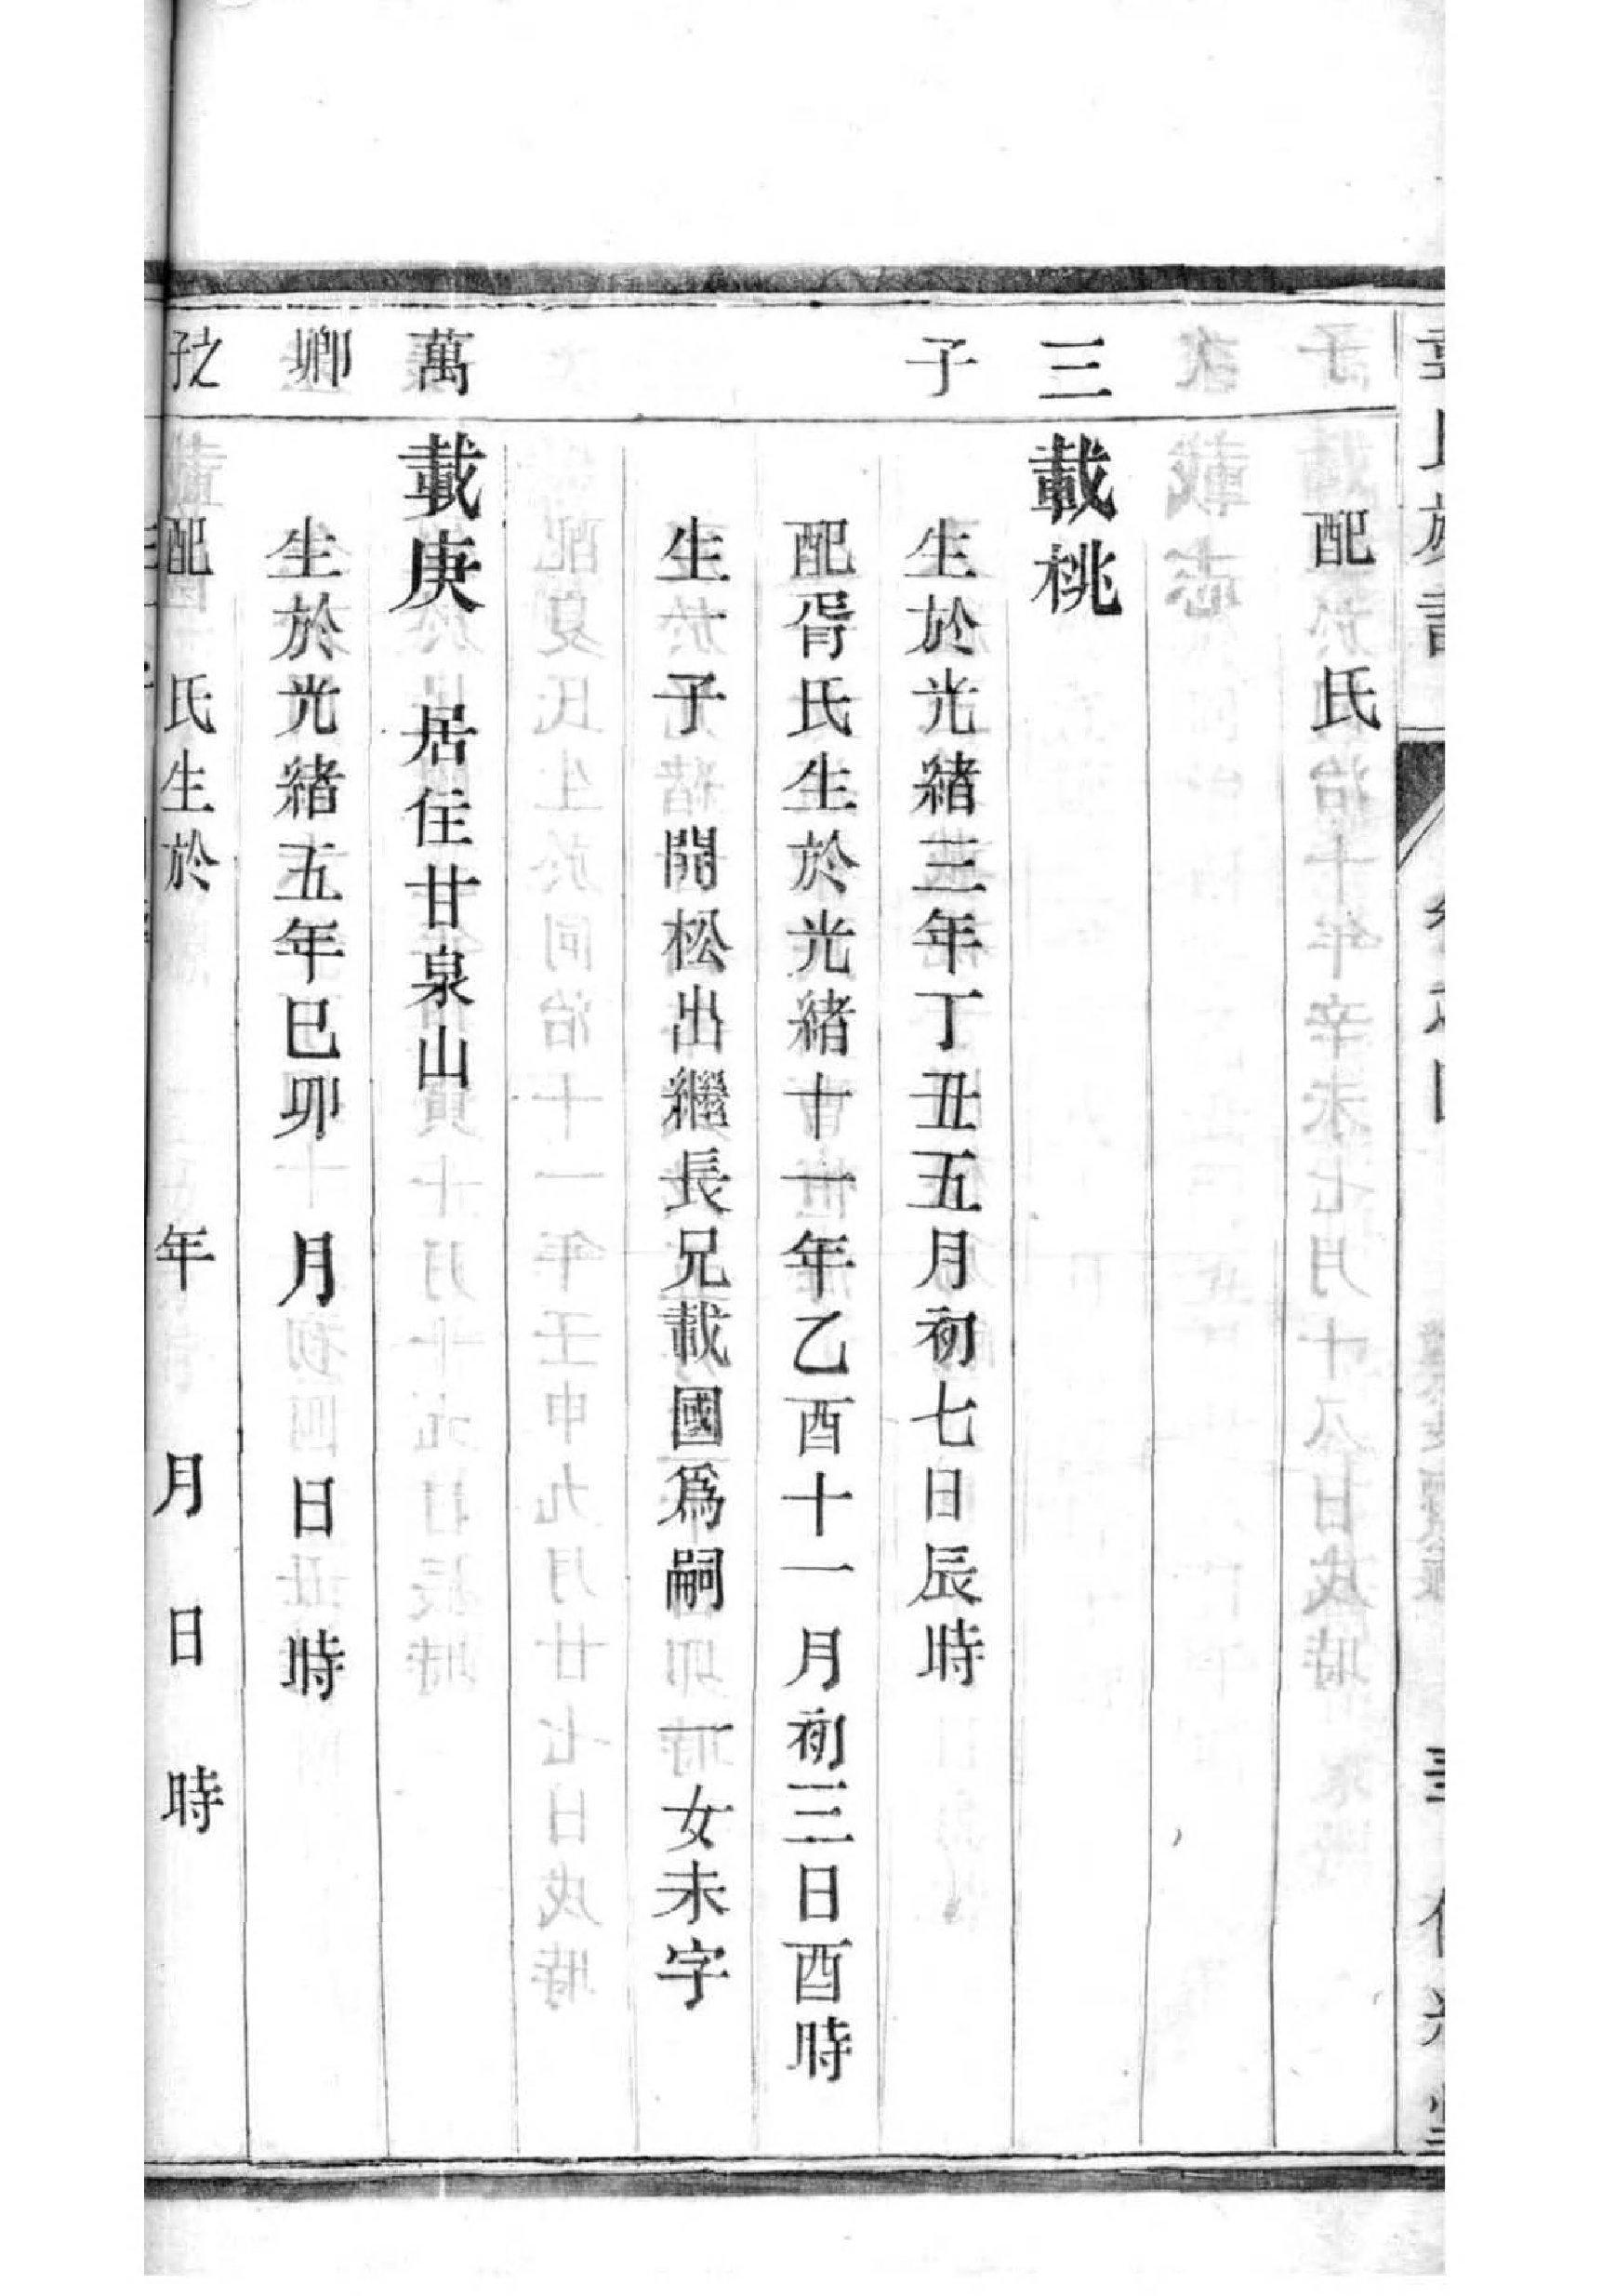 配　氏
三子
載桃
生於光緒三年丁丑五月初七日辰時
配胥氏生於光緒十一年乙酉十一月初三日酉時
生一子開松出繼長兄載國爲嗣　一女未字
萬卿之子
載庚　居住甘泉山
生於光緒五年巳卯　月　日　時
配　氏生於　年　月　日　時